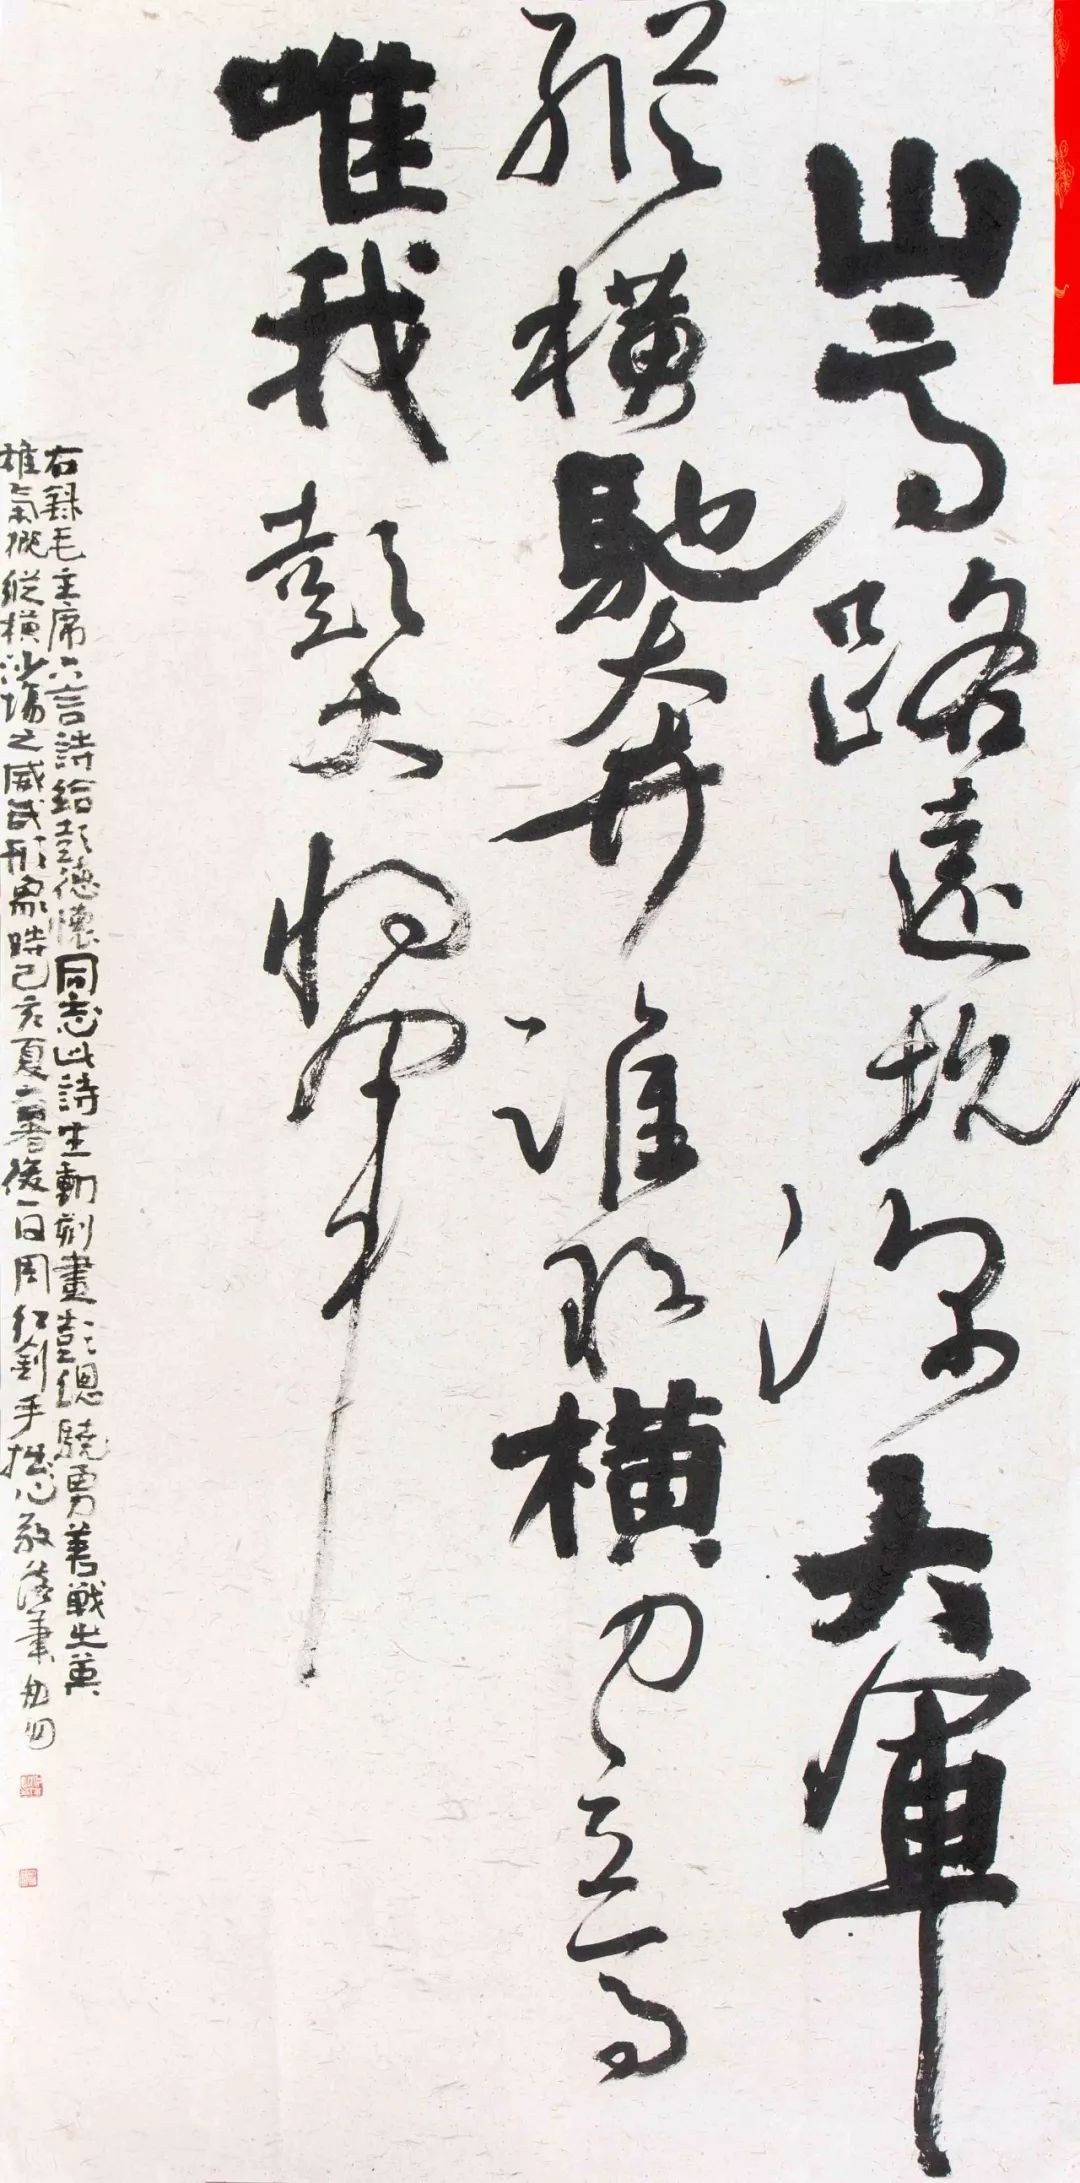 山高路遠坑深大軍
縱橫馳奔誰敢橫刀立馬
唯我彭大將軍
右錄毛主席六言詩給彭德懷同志此詩生動刻畫彭總驍勇善戰之英
雄氣概縱橫沙場之威武形象時己亥夏暑後一日周紅劍手拙心敬落筆